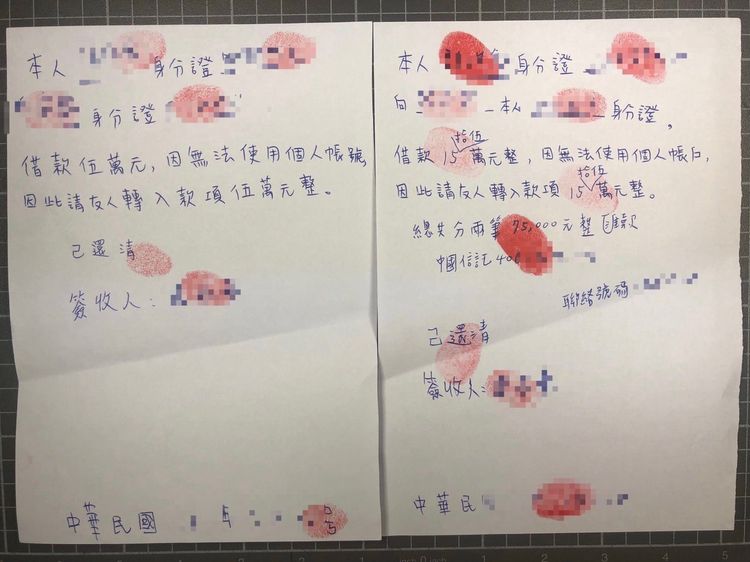 本人 身分證
身分證
借款伍萬元,因無法使用個人帳號
因此請友人轉入款項伍萬元整。
己還清
簽收人:
中華民國
本人 身分證
向 本人 身份證,
借款15萬元整,因無法使用個人帳戶,
拾伍
因此請友人轉入款項15萬元整。
拾伍
總共分兩筆75,000元整匯款
中國信託
聯絡號碼
己還清
簽收人:
中華民